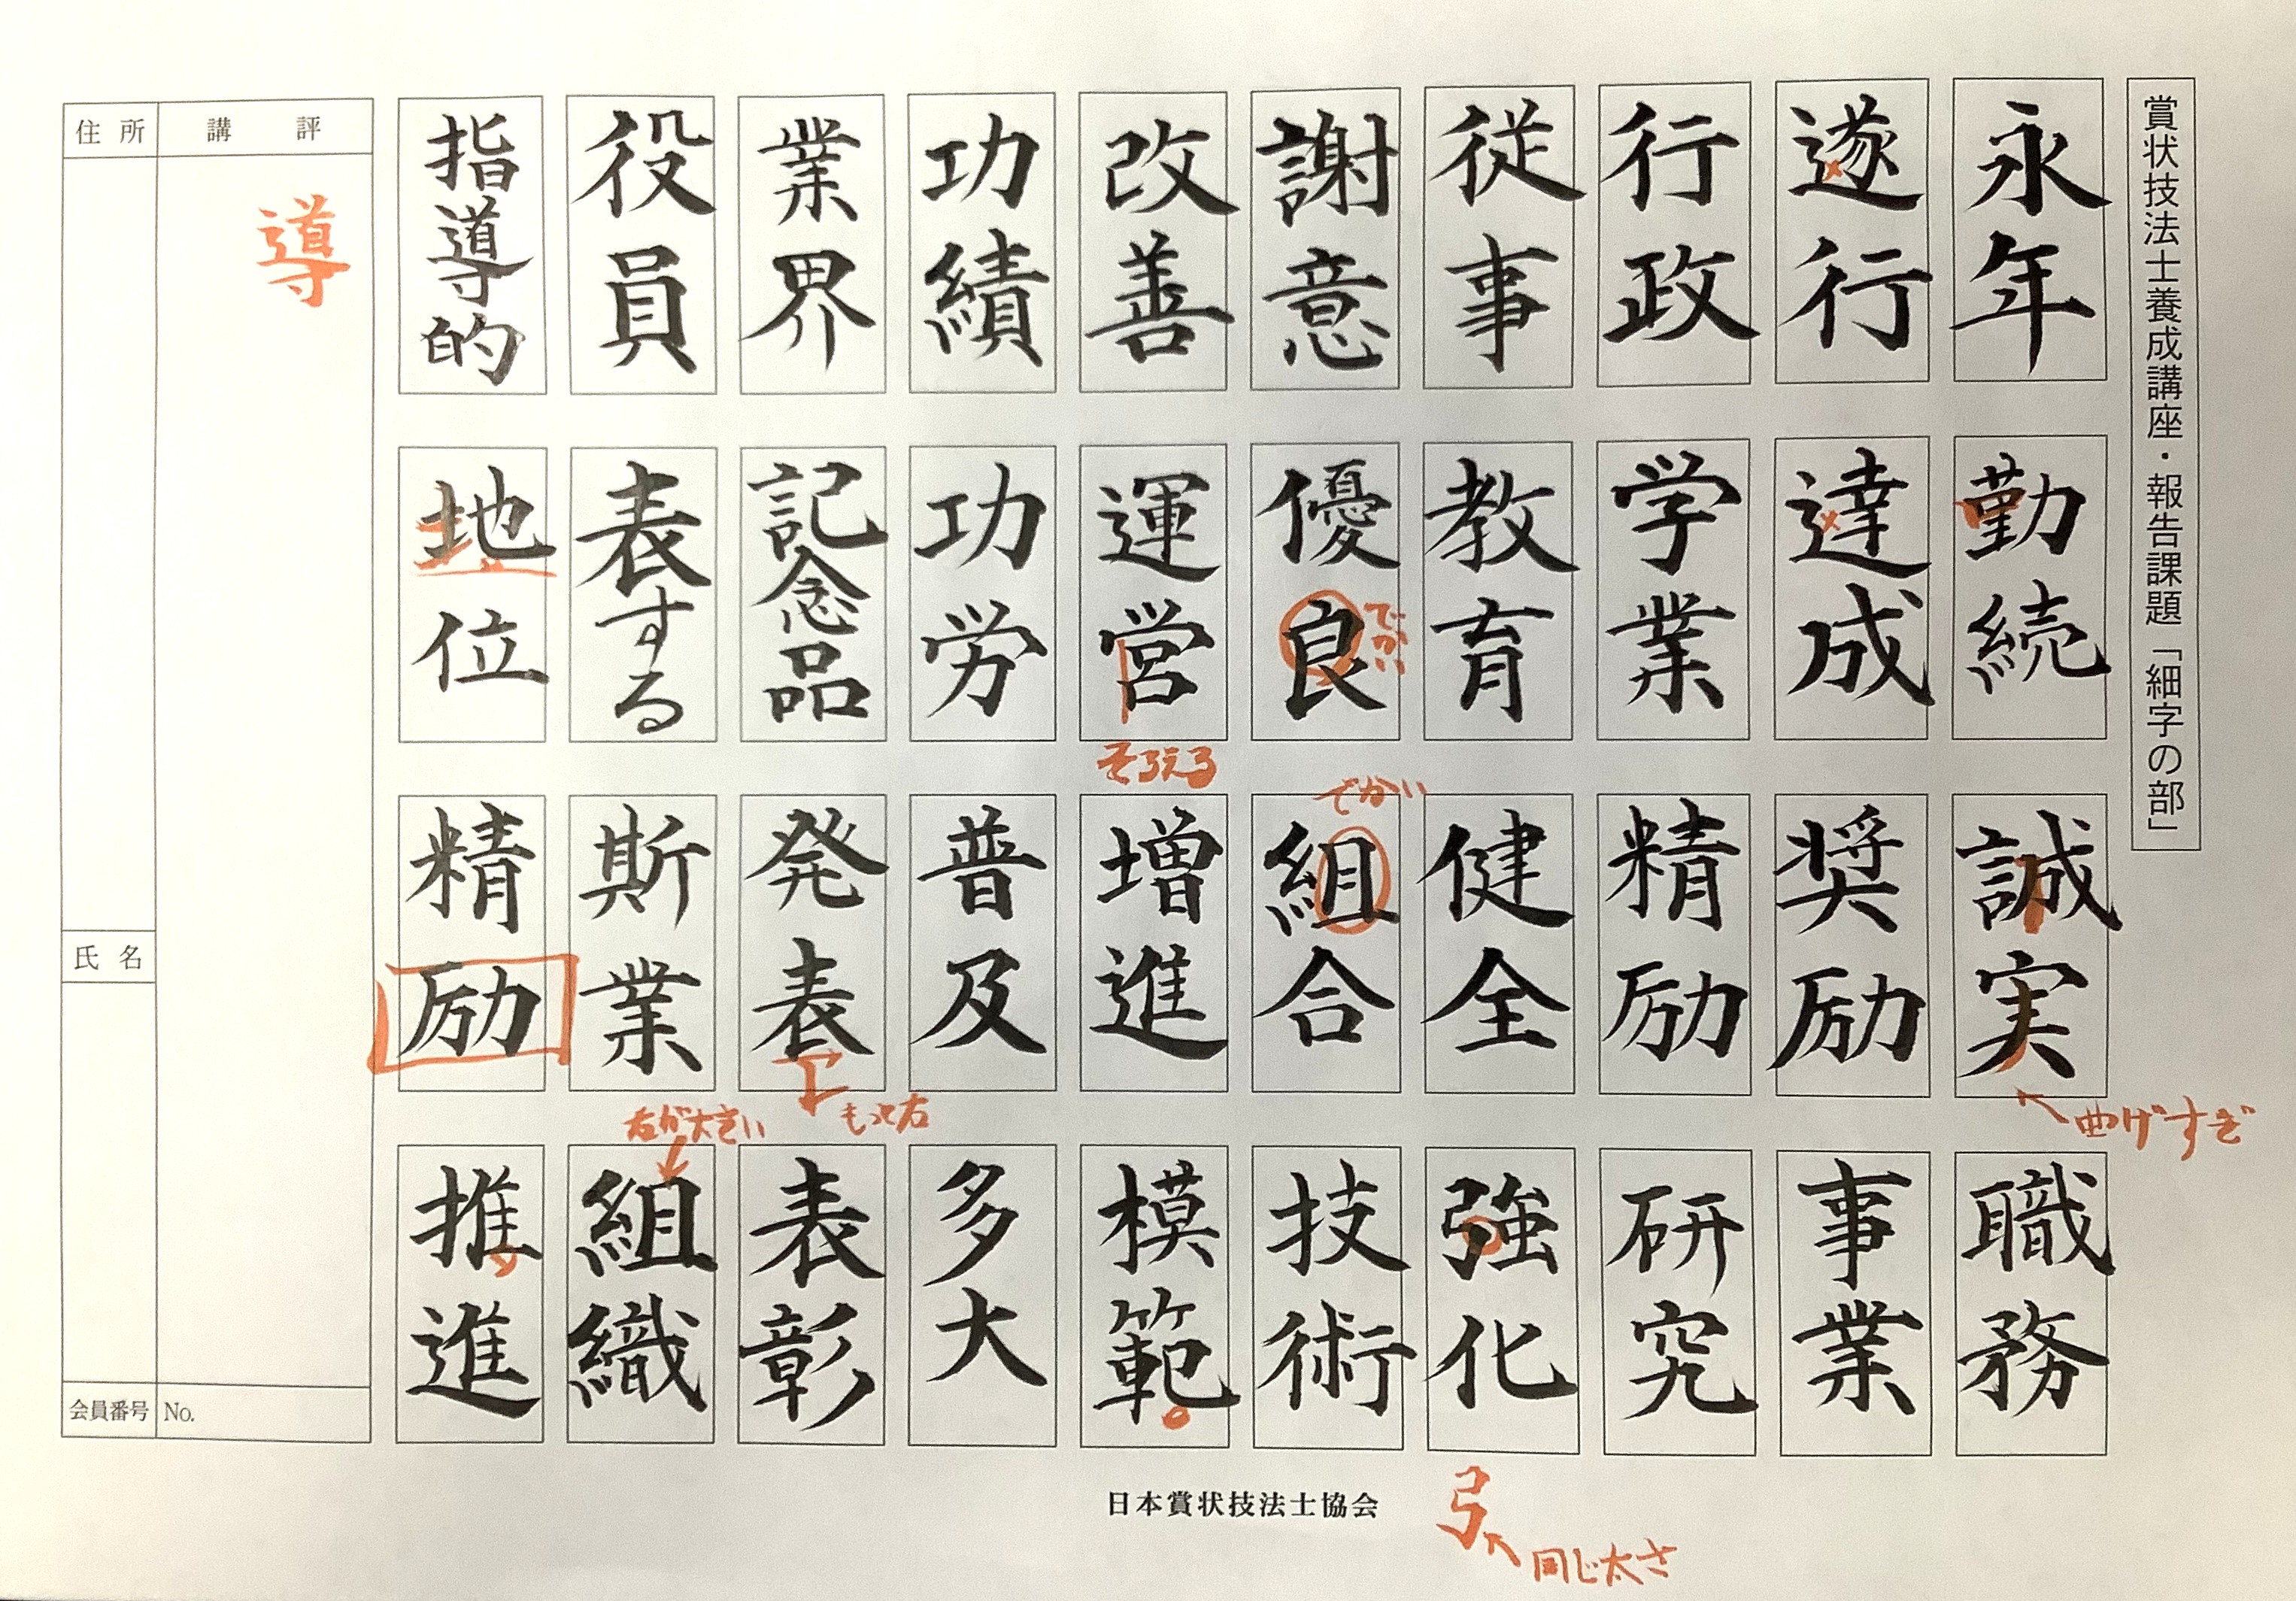 賞状技法士養成講座・報告課題「細字の部」
永年
勤続
誠実
曲げすぎ
職務
遂行
達成
奨励
事業
行政
学業
精励
研究
従事
教育
健全
強化
弓
同じ太さ
謝意
優良
でかい
でかい
組合
技術
改善
運営
そろえる
増進
模範
功績
功労
普及
多大
業界
記念品
発表
もっと右
表彰
役員
表する
斯業
右が大きい
組織
指導的
地位
精励
推進
講評
導
住所
氏名
会員番号 No.
日本賞状技法士協会